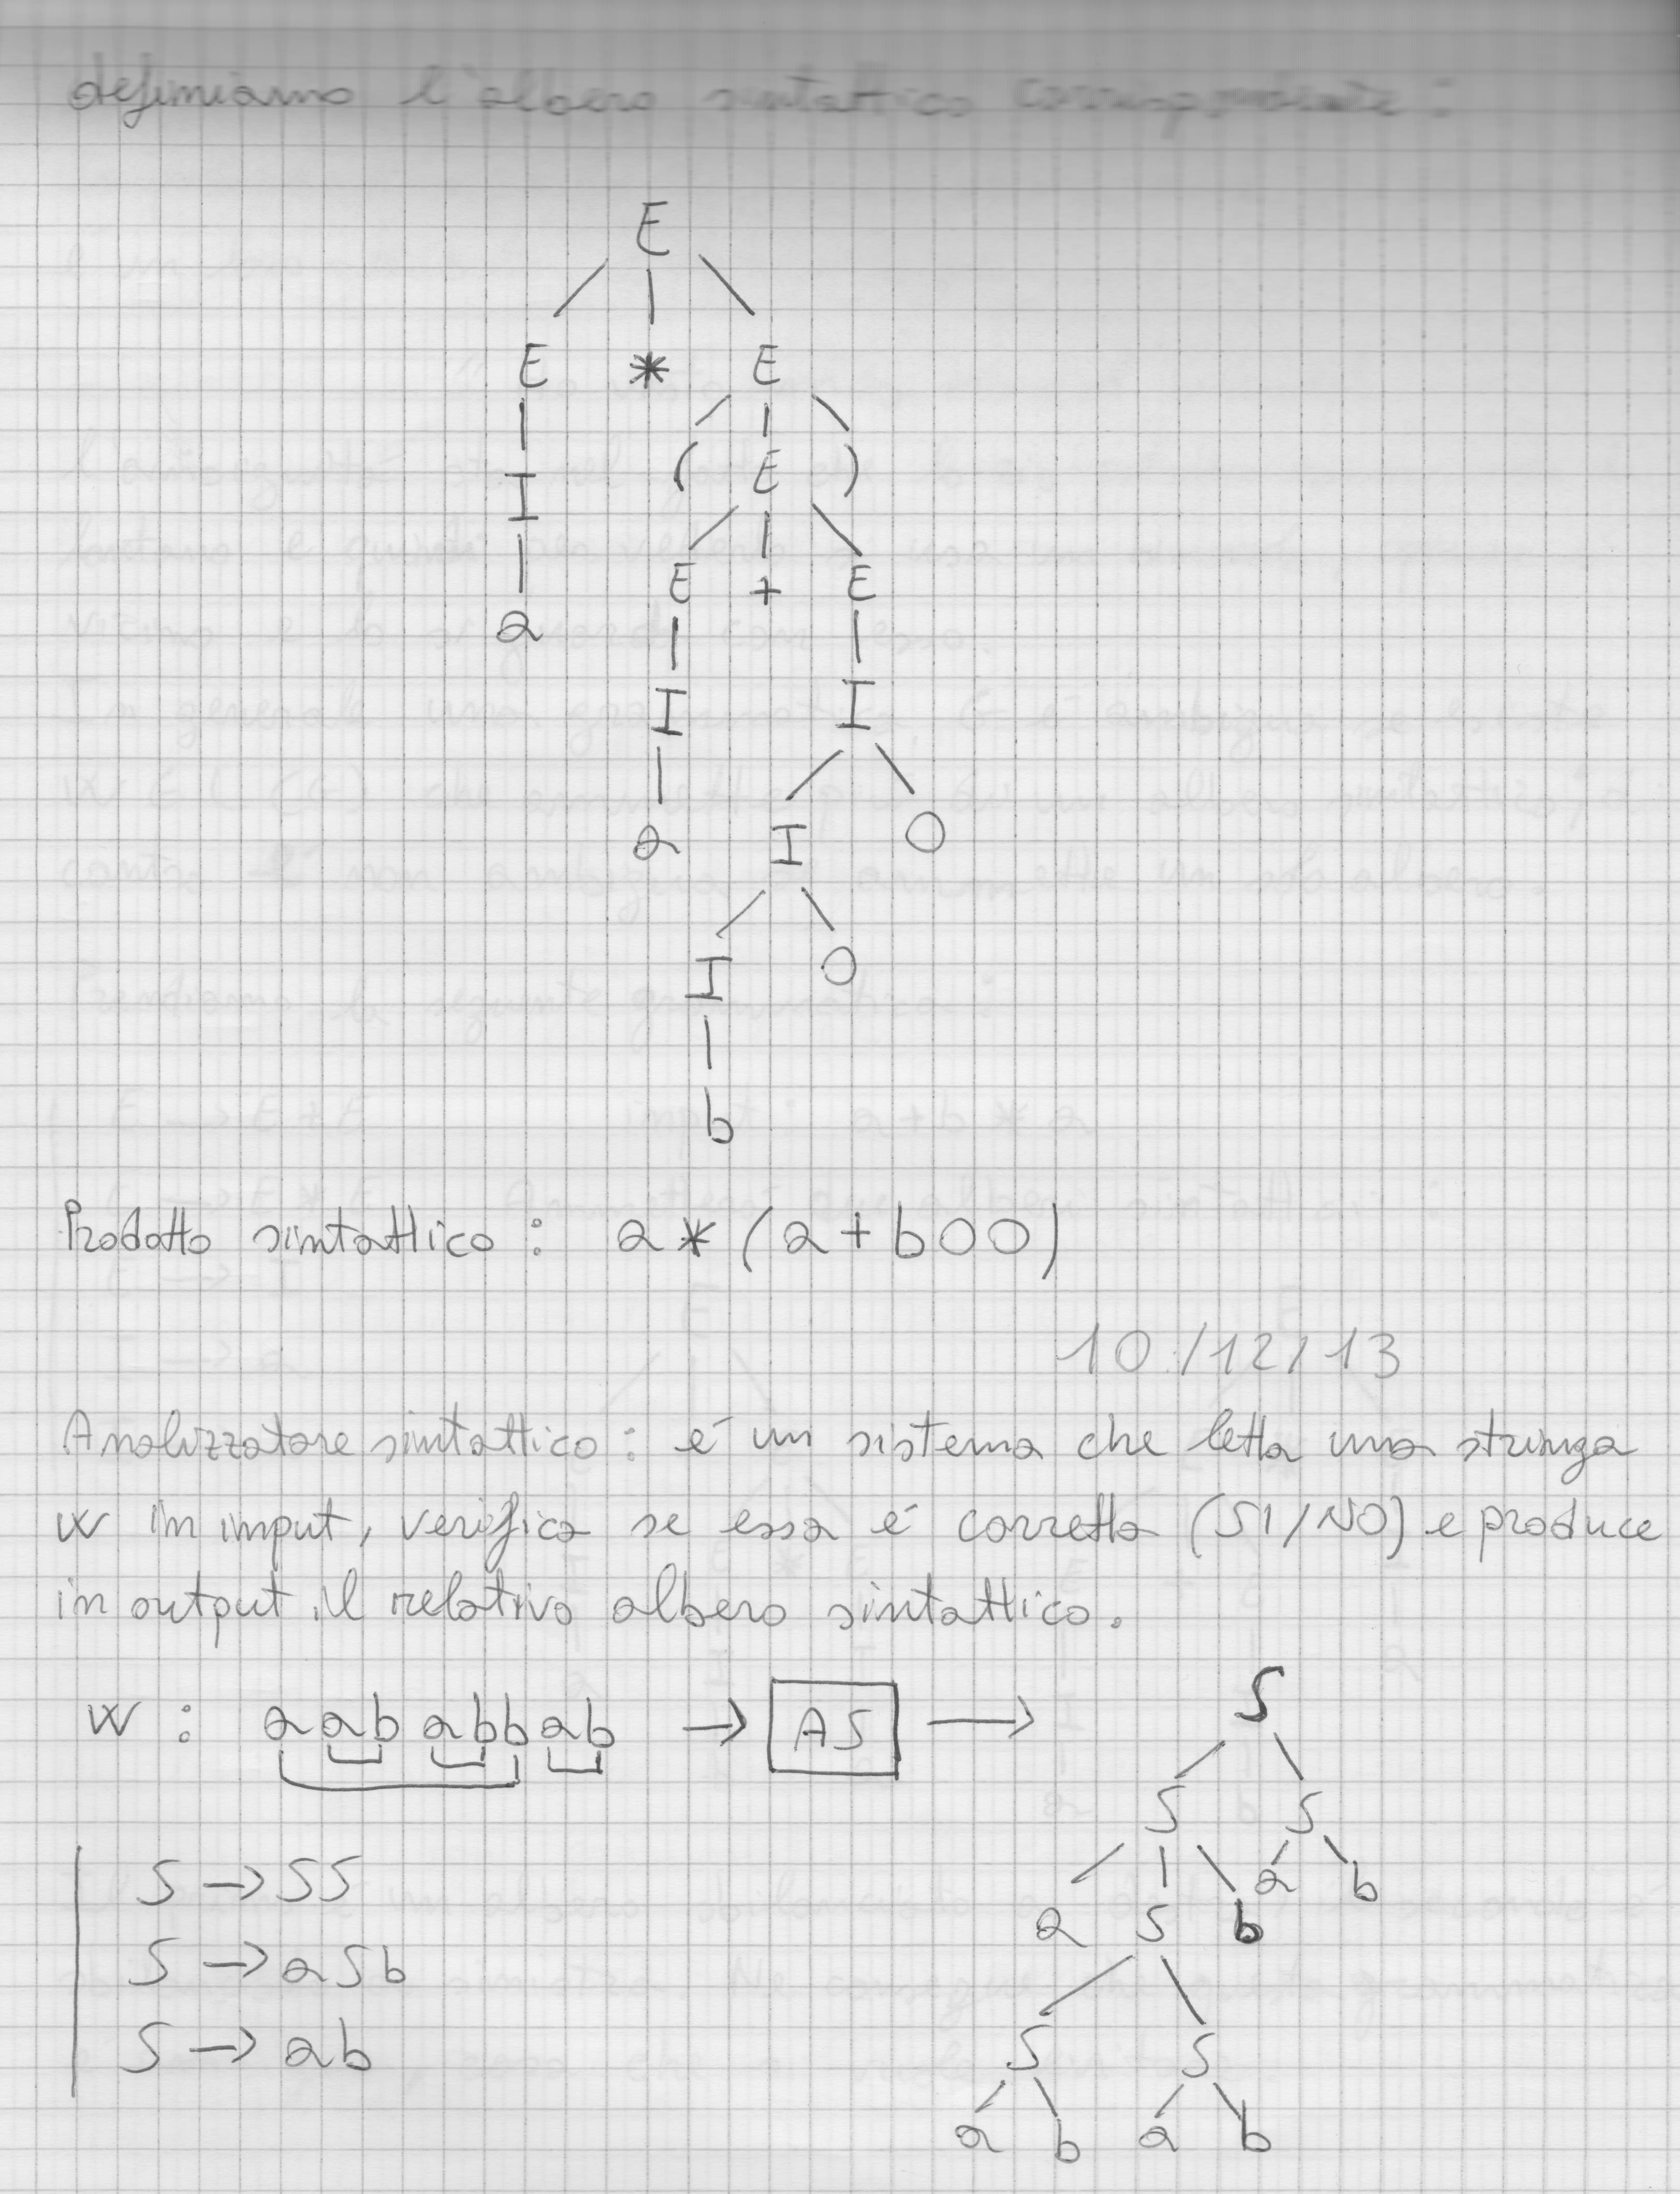 definiamo l'albero sintattico corrispondente:
E
E * E
I ( E )
a E + E
I I
a I 0
I 0
b
Prodotto sintattico: a*(a+b00)
10/12/13
Analizzatore sintattico: é un sistema che letta una stringa
w in input, verifica se essa é corretta (SI/NO) e produce
in output il relativo albero sintattico.
w: aababbab → AS →
S
S S
a S b a b
S S
a b a b
S → SS
S → aSb
S → ab